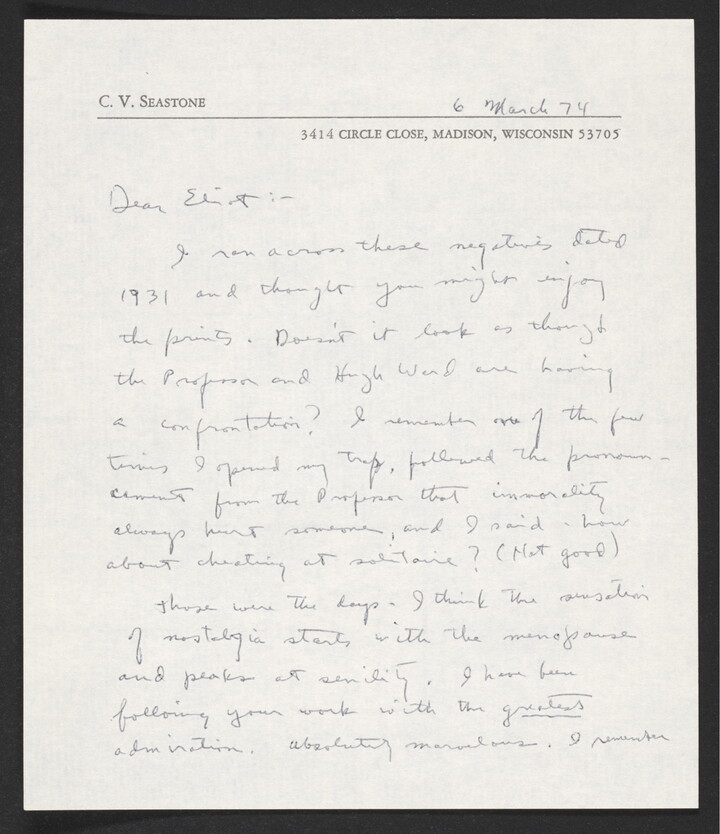 C. V. SEASTONE
6 March 74
3414 CIRCLE CLOSE, MADISON, WISCONSIN 53705
Dear Eliot :-
I ran across these negatives dated
1931 and thought you might enjoy
the prints. Doesn't it look as though
the Professor and Hugh Ward are having
a confrontation? I remember one of the few
times I opened my trap, followed the pronoun-
cement from the Professor that immorality
always hurt someone, and I said - how
about cheating at solitaire? (Not good)
Those were the days. I think the sensation
of nostalgia starts with the menopause
and peaks at senility. I have been
following your work with the greatest
admiration. Absolutely marvelous. I remember